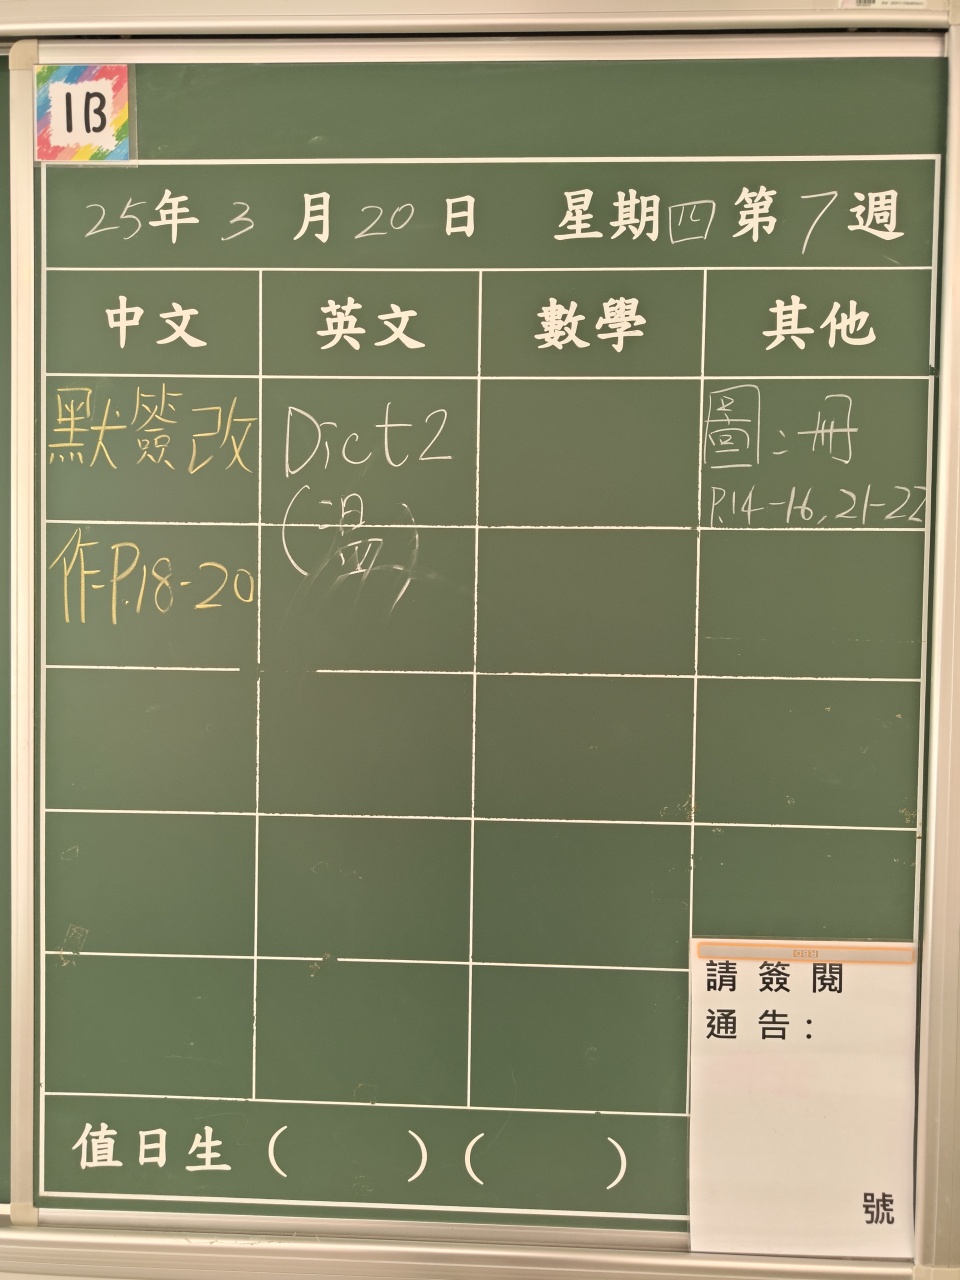 1B
25年3月20日 星期四第7週
中文 英文 數學 其他
默簽改
作P.18-20
Dict 2
(溫)
圖:冊
P.14-16, 21-22
請簽閱
通告:
號
值日生( )( )